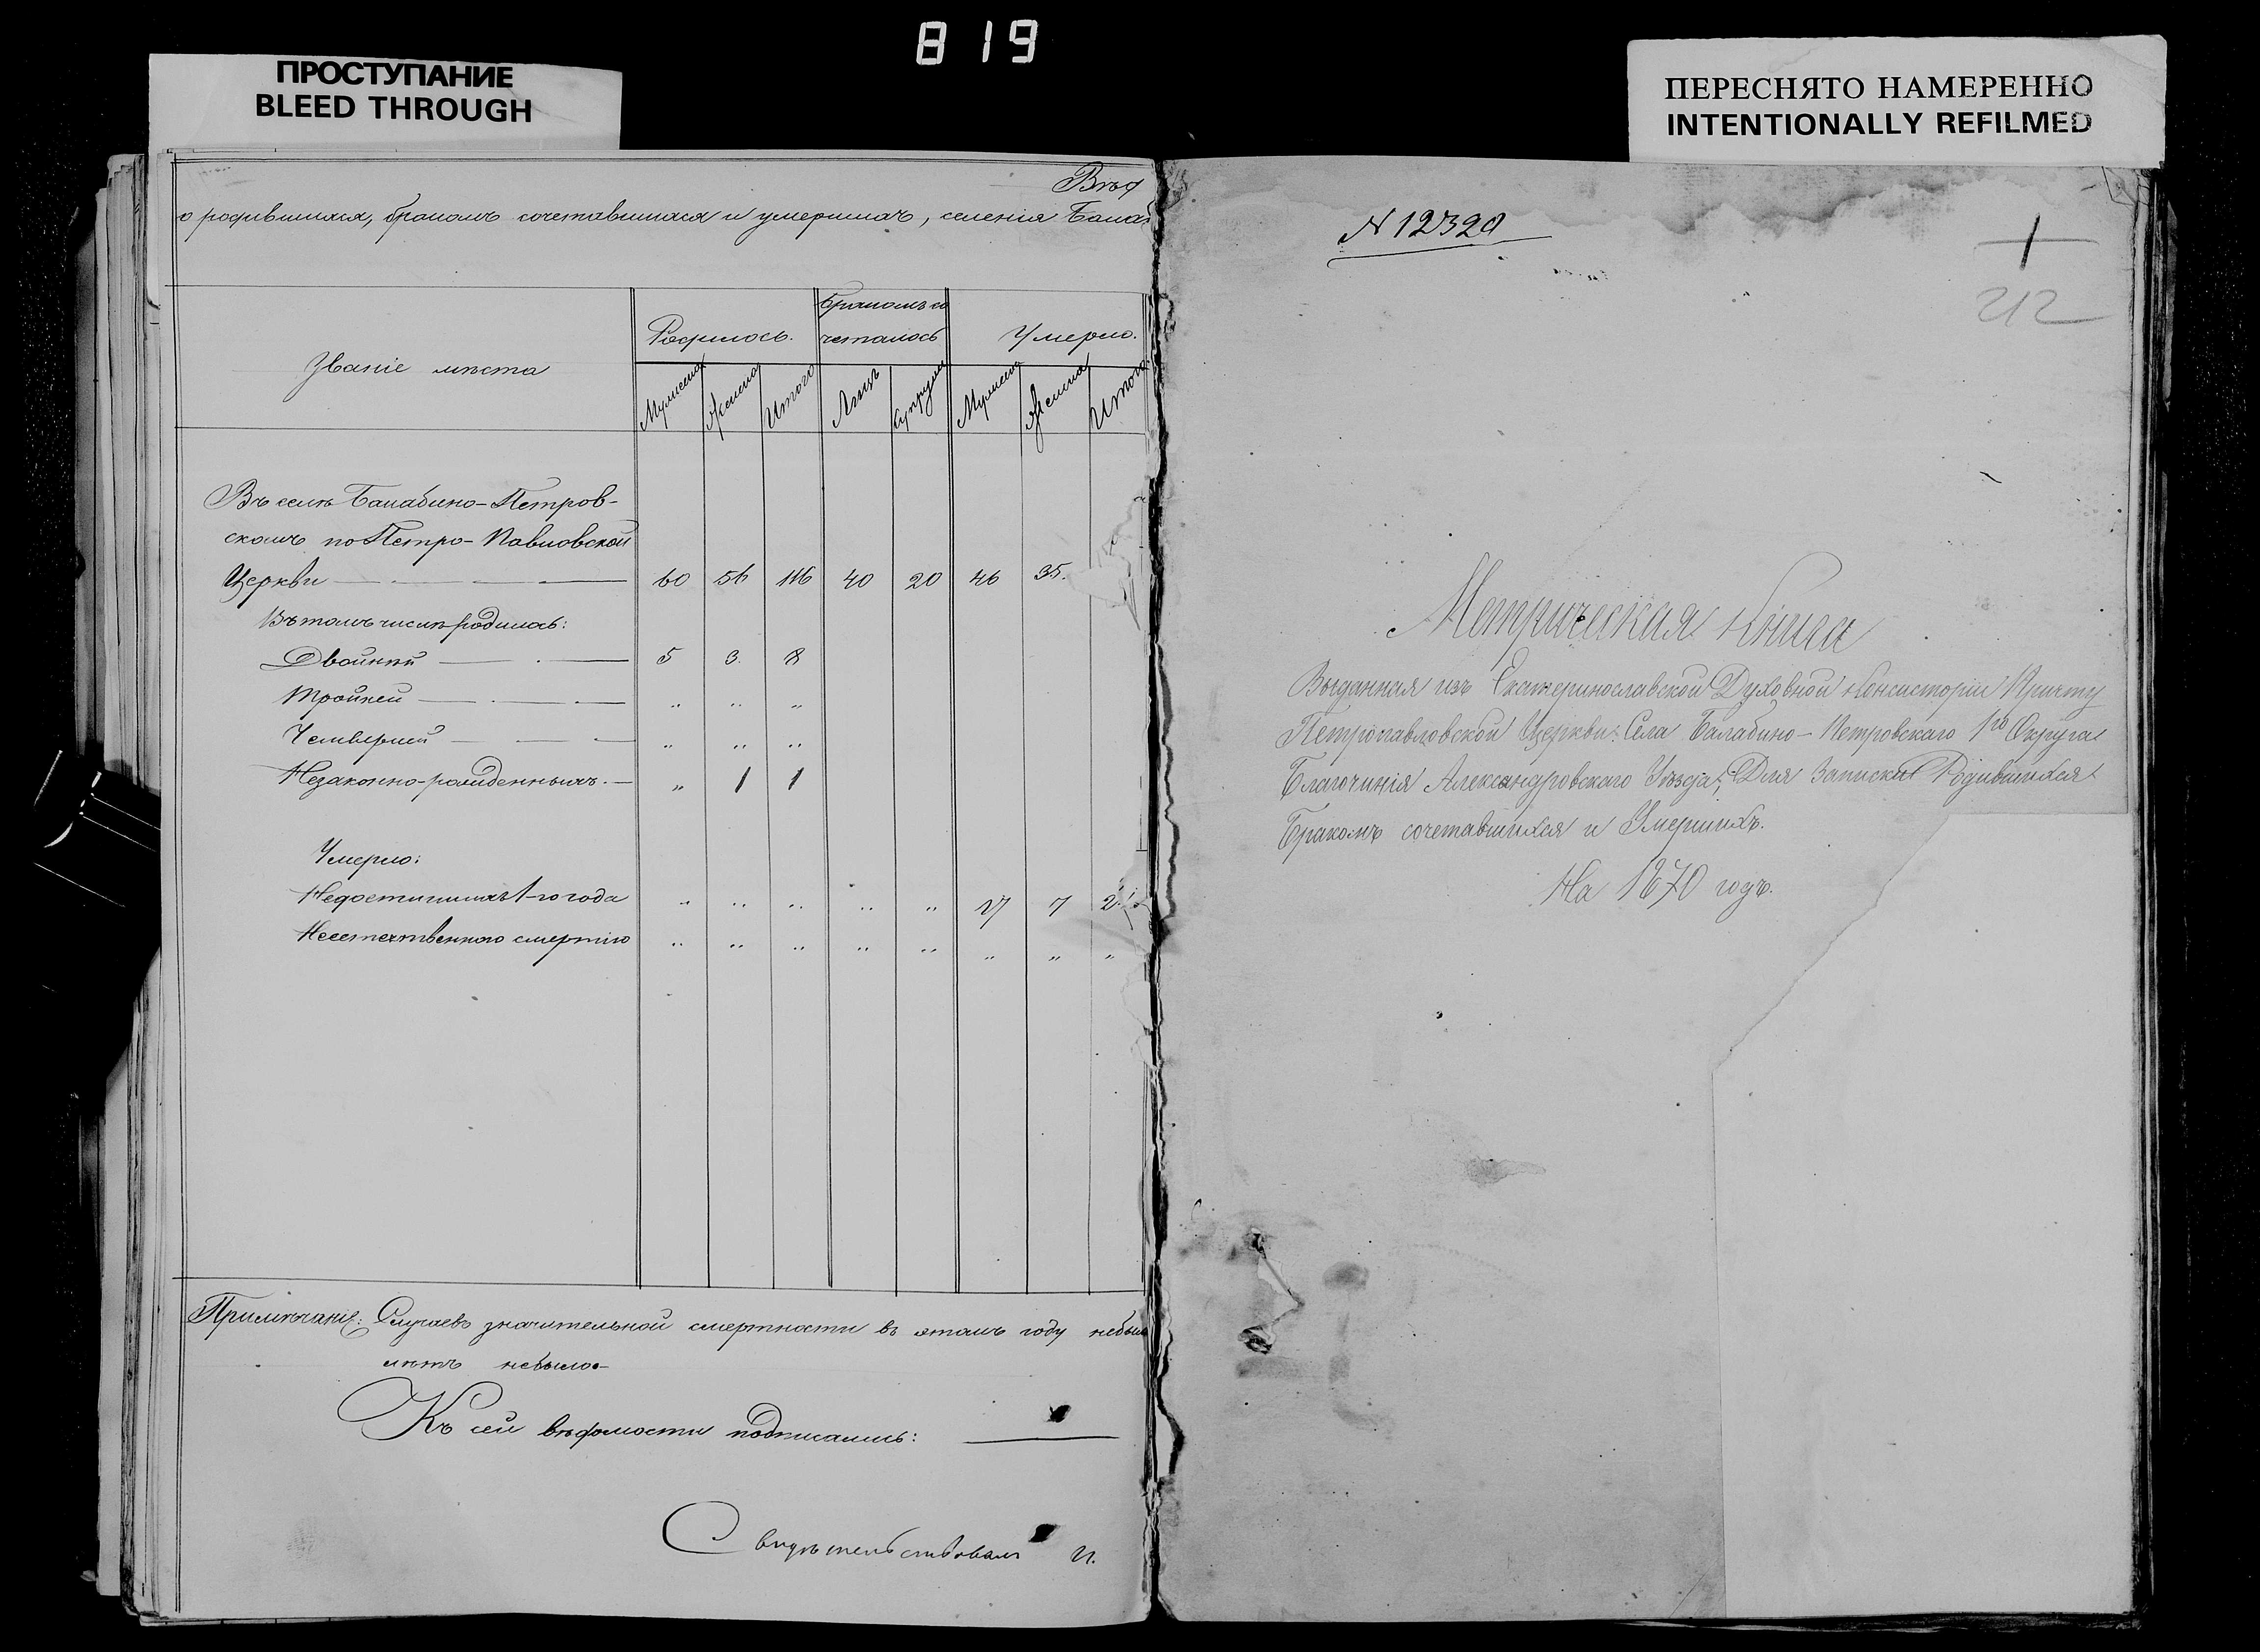 819
ПРОСТУПАНИЕ
BLEED THROUGH
ПЕРЕСНЯТО НАМЕРЕННО
INTENTIONALLY REFILMED
Вѣд
о родившихся, бракомъ сочетавшихся и умершихъ, селенія Балаб
Званіе мѣста
Родилось.
Бракомъ со
четалось
Умерло.
Мужеска Женска Итого Лицъ Супруж Мужеска Женска Итого
Въ селѣ Балабино-Петров-
скомъ по Петро-Павловской
Церкви 60 56 116 40 20 46 35.
Въ томъ числѣ родилось:
Двойней 5 3. 8
Тройней „ „ „
Четверней „ „ „
Незаконно-рожденныхъ. „ 1 1
Умерло:
Недостигшихъ 1-го года „ „ „ „ „ 17 7 2
Неестественною смертію „ „ „ „ „ „ „ „
Примѣчаніе: Случаевъ значительной смертности въ этомъ году небыл
лѣтъ небыло
Къ сей вѣдомости подписались:
Свидѣтельствовалъ и.
N 12320
1
212
Метрическая Книга
Выданная изъ Екатеринославской Духовной Консисторіи Причту
Петропавловской Церкви Села Балабино-Петровскаго 1го Округа
Благочинія Александровскаго Уѣзда, Для Записки Родившихся
Бракомъ сочетавшихся и Умершихъ.
На 1870 годъ.